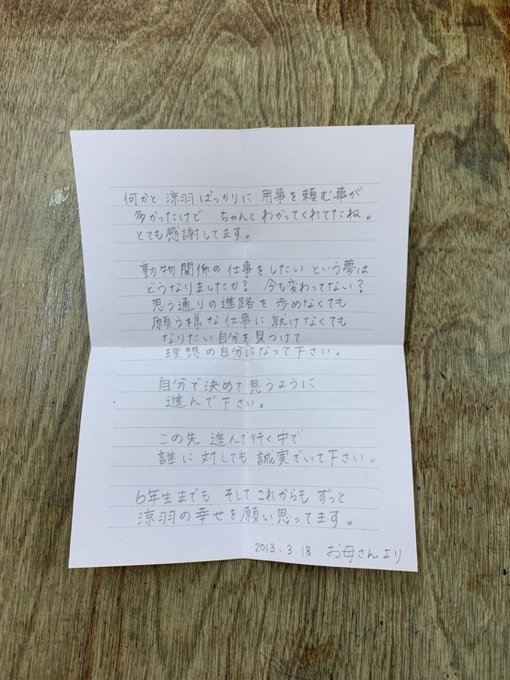 何かと 涼羽ばっかりに 用事を頼む事が
多かったけど ちゃんと わかってくれてたね。
とても感謝してます。
動物関係の仕事をしたい という夢は
どうなりましたか？ 今も変わってない？
思う通りの進路を歩めなくても
願う様な仕事に就けなくても
なりたい自分を見つけて
理想の自分になって下さい。
自分で決めて思うように
進んで下さい。
この先 進んで行く中で
誰に対しても 誠実でいて下さい。
6年生までも そして これからも ずっと
涼羽の幸せを願い思ってます。
2013.3.18 お母さんより